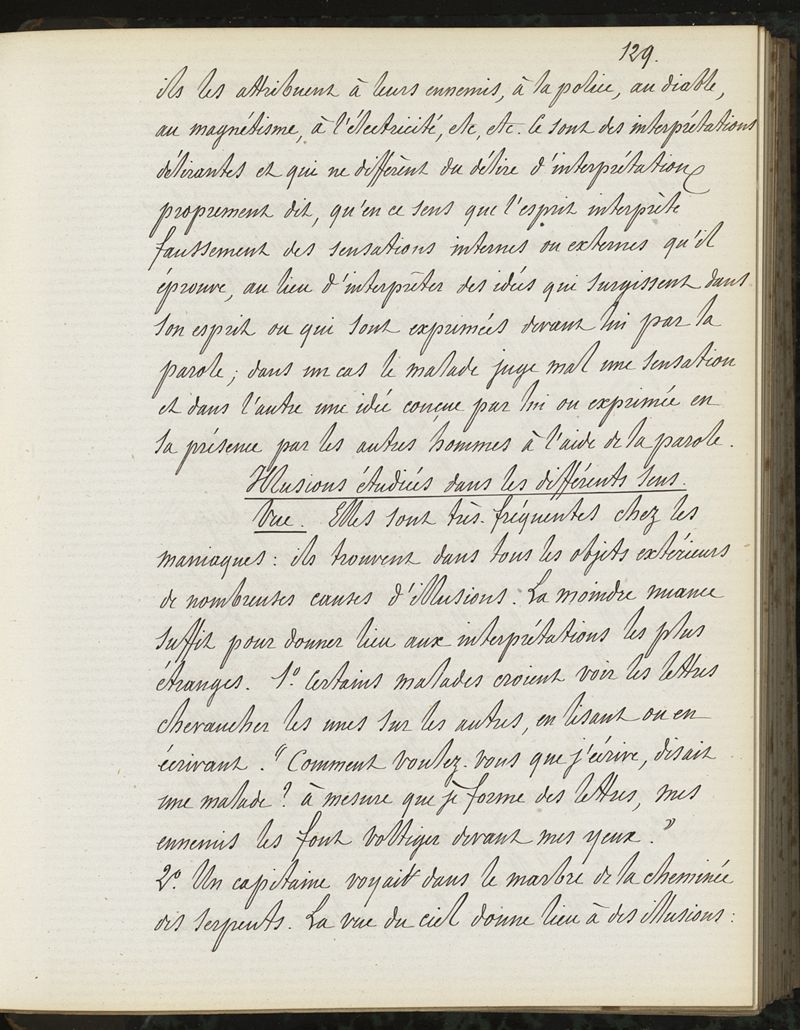 129.
ils les attribuent à leurs ennemis, à la police, au diable,
au magnétisme, à l'électricité, etc, etc. Ce sont des interprétations
délirantes et qui ne diffèrent du délire d'interprétation
proprement dit, qu'en ce sens que l'esprit interprète
faussement des sensations internes ou externes qu'il
éprouve, au lieu d'interpréter des idées qui surgissent dans
son esprit ou qui sont exprimées devant lui par la
parole; dans un cas le malade juge mal une sensation
et dans l'autre une idée conçue par lui ou exprimée en
sa présence par les autres hommes à l'aide de la parole.
Illusions étudiées dans les différents sens.
Vue. Elles sont très-fréquentes chez les
maniaques: ils trouvent dans tous les objets extérieurs
de nombreuses causes d'illusions. La moindre nuance
suffit pour donner lieu aux interprétations les plus
étranges. 1.° Certains malades croient voir les lettres
chevaucher les unes sur les autres, en lisant ou en
écrivant. "Comment voulez-vous que j'écrive, disait
une malade? à mesure que je forme des lettres, mes
ennemis les font voltiger devant mes yeux."
2.° Un capitaine voyait dans le marbre de la cheminée
des serpents. La vue du ciel donne lieu à des illusions: